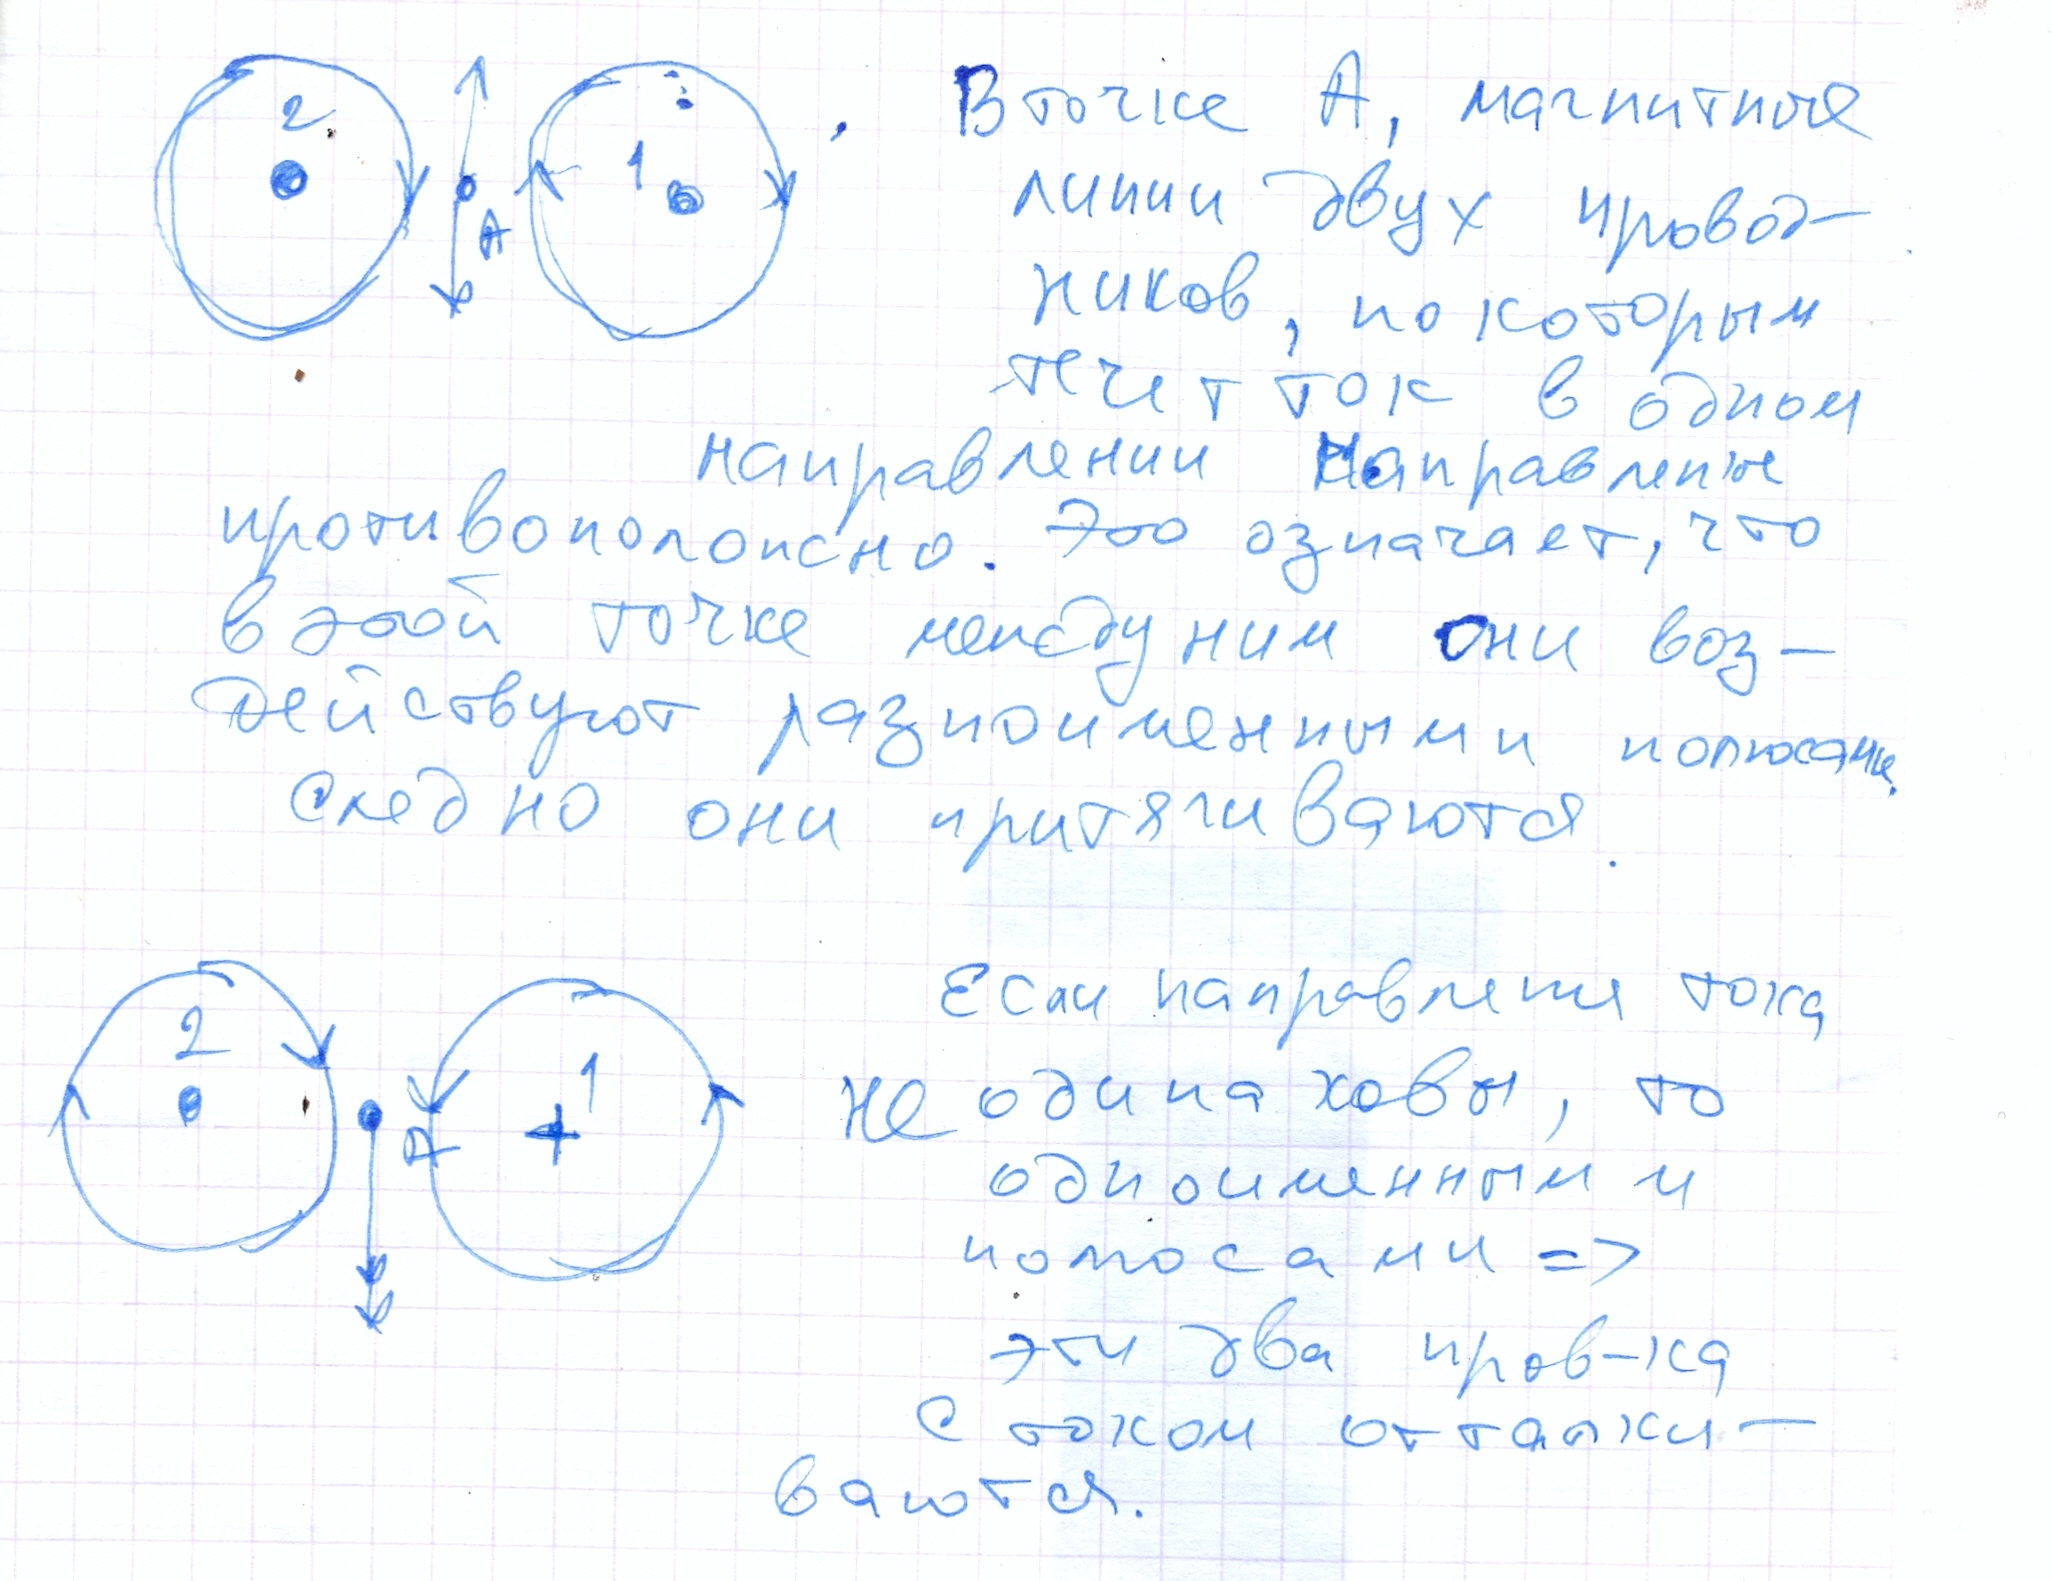 2
1
А
В точке А, магнитные
линии двух провод-
ников, по которым
течет ток в одном
направлении направлены
противоположно. Это означает, что
в этой точке между ним они воз-
действуют разноименными полюсами.
След но они притягиваются.
Если направления тока
не одинаковы, то
одноименными
полюсами =>
эти два пров-ка
с током отталки-
ваются.
2
1
А